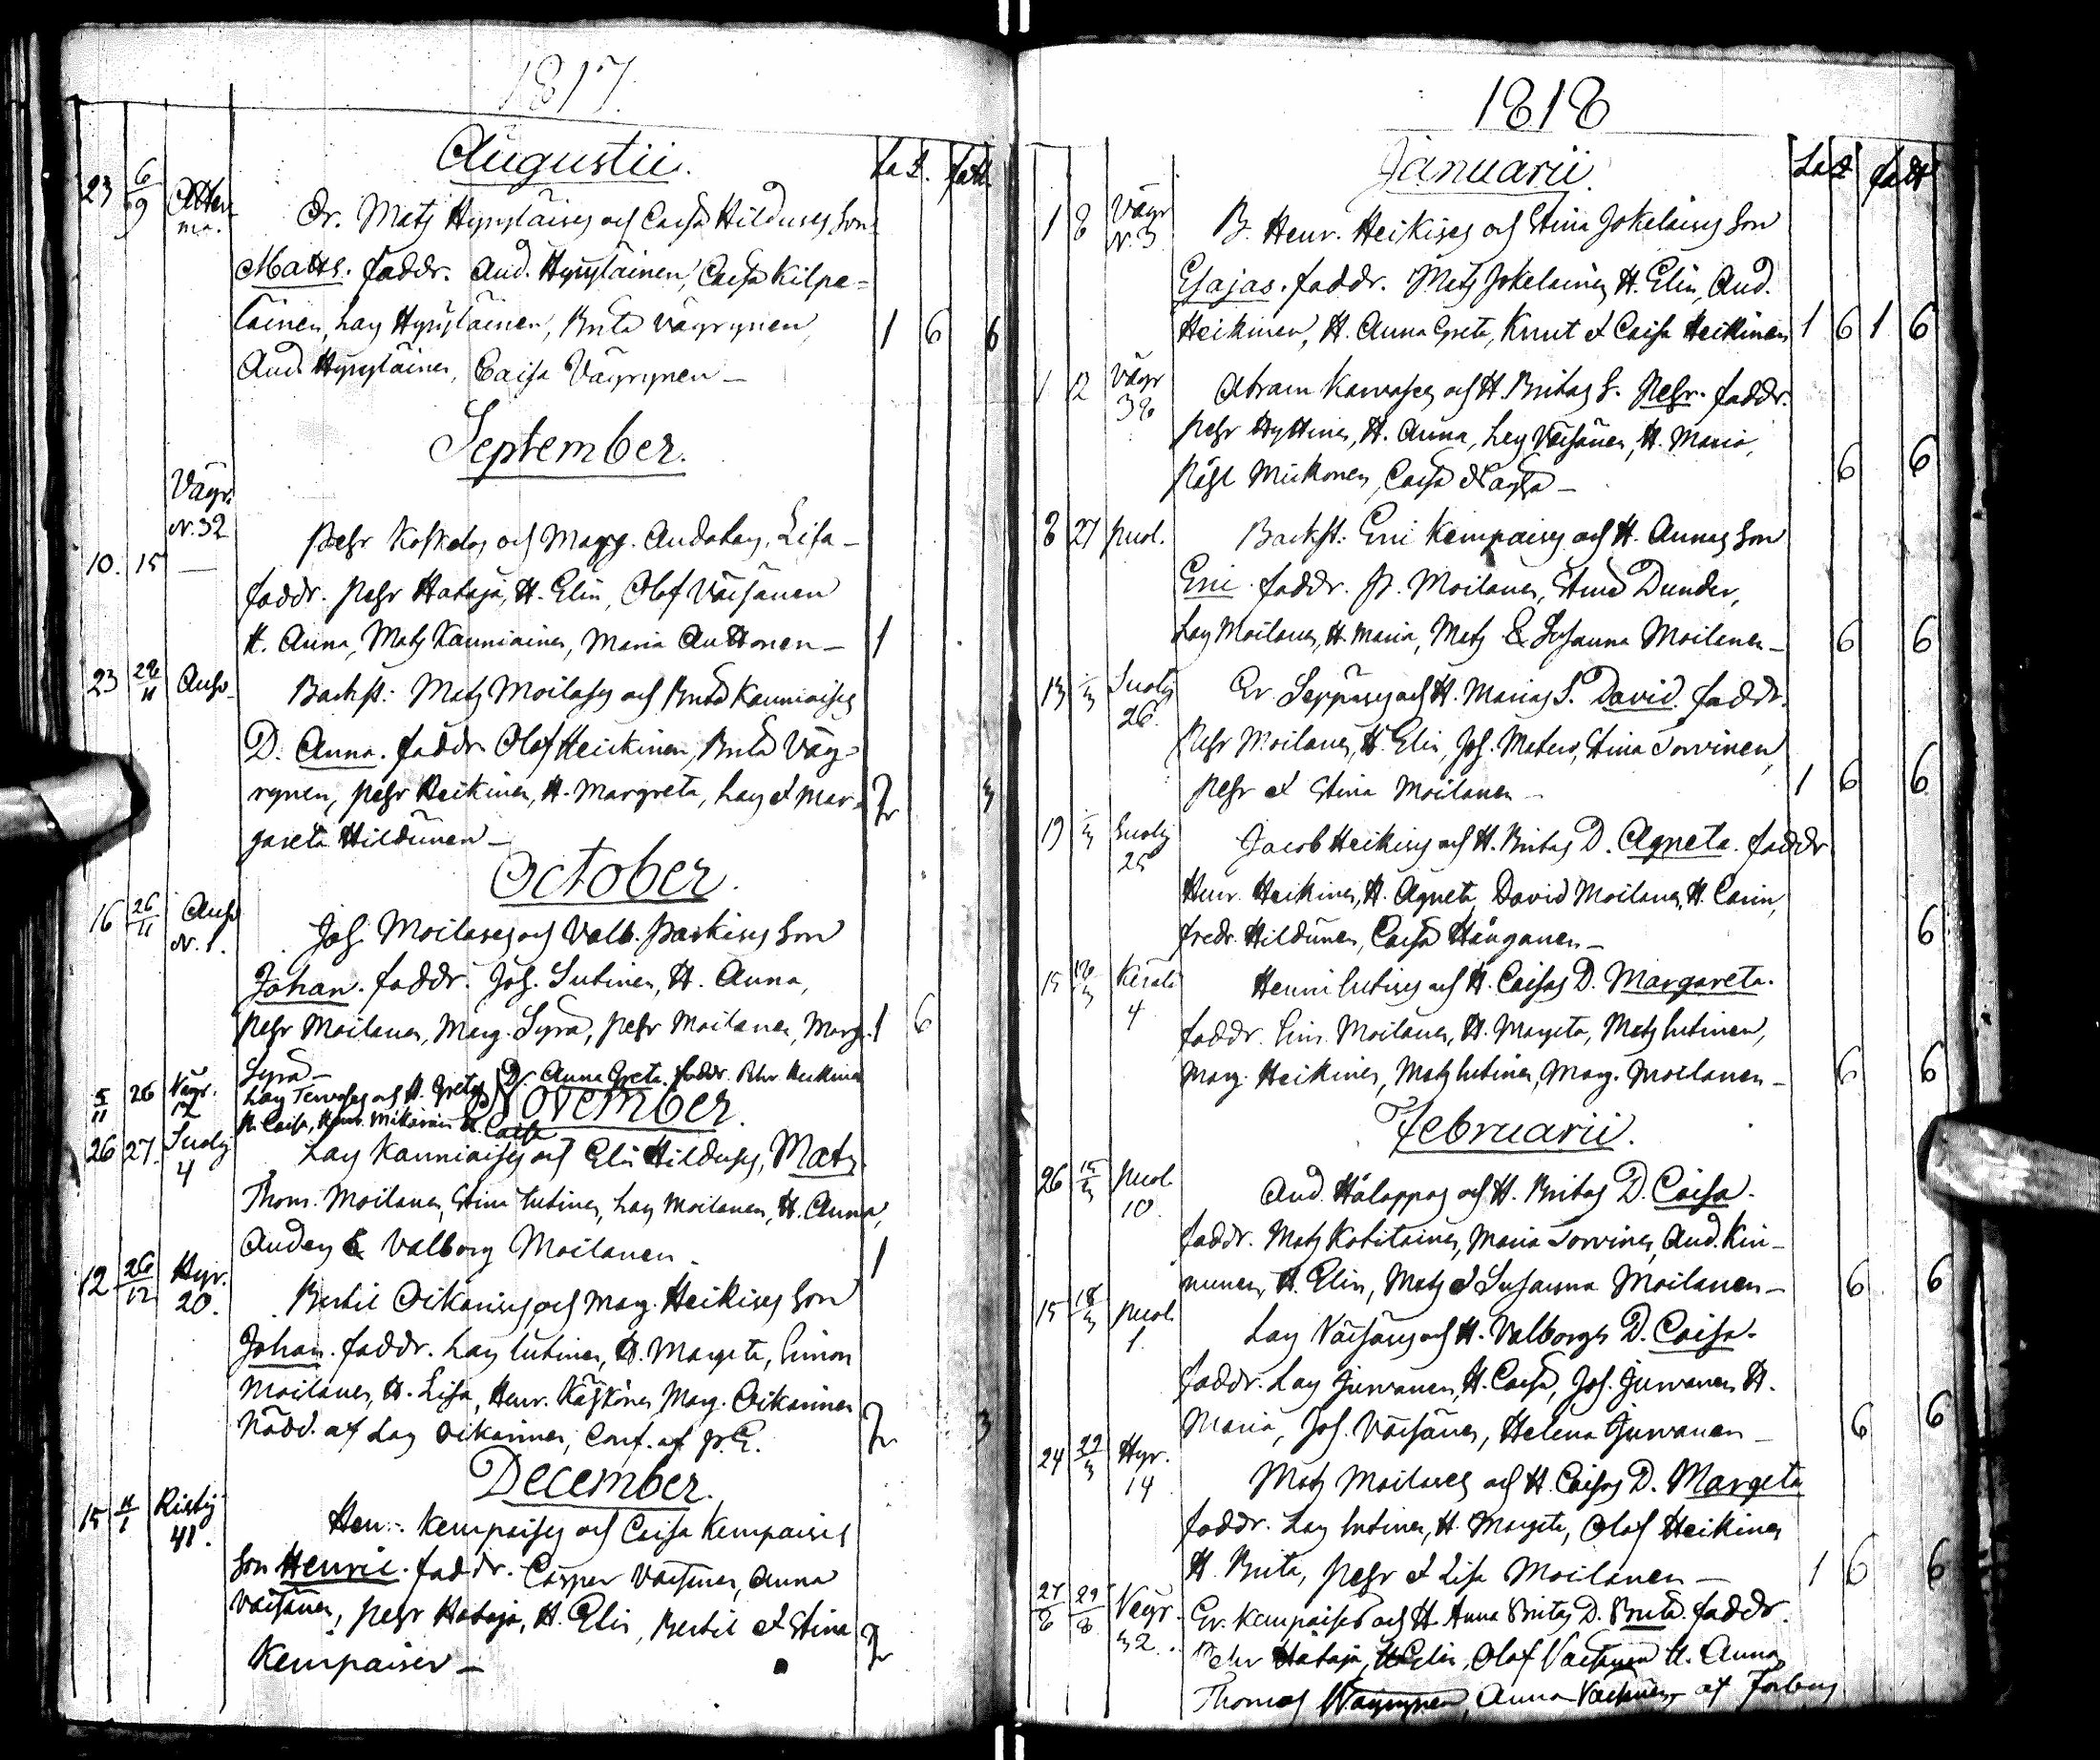 1817.
Augustii.
La d. fatt.
23 6/9 Otter
ma. Er. Matz Hyrylaises och Caisa Hilduses Son
Matts. faddr. And. Hyryläinen, Caisa Kilpe=
läinen, Lars Hyryläinen, Brita Väyrynen, 1 6 6
And Hyryläinen, Caisa Väyrynen –
September.
Väyr.
N. 32
10. 15 — Pehr Koskelos och Marg. Andolas, Lisa –
faddr. Pehr Hataja, H. Elin, Olof Väisänen
H. Anna, Matz Kanniainen, Maria Anttonen – 1
23 28/11 Backst: Matz Moilases och Brita Kanniaises
D. Anna. faddr. Olof Heickinen, Brita Väy=
rynen, Pehr Heikinen, H. Margreta, Lars et Mar= 3
gareta Hildunen –
October.
16 26/11
N. 1. Joh. Moilases och Valb. Parkises Son
Johan. faddr. Joh. Lutinen, H. Anna,
Pehr Moilanen, Marg. Syrä, Pehr Moilanen, Marg. 1 6
Syrä –
5/11 26 Väyr.
12 Lars Tervoses och H. Gretas D. Anna Greta. faddr. Pehr Heikinen
H. Caisa, Henr. Mikänen H. Caisa
November.
26 27. Suolij
4 Lars Kanniaises och Elin Hilduses, Matz.
Thom. Moilanen, Stina Lutinen, Lars Moilanen, H. Anna,
Anders & Valborg Moilanen. 1
12 26/12 Hyr.
20. Bertil Oikarises och Marg. Heikises Son
Johan. faddr. Lars Lutinen, H. Margreta, Simon
Moilanen, H. Lisa, Henr. Käskönen, Marg. Oikarinen
Nödd. af Lars Oikarinen, Conf. af p. E. 3
December.
15 11/1 Ristij
41. Hen: Kempaises och Caisa Kempaises
Son Henric. faddr. Casper Väisänen, Anna
Väisänen, Pehr Hataja, H. Elin, Bertil et Stina
Kempainen –
1818
Januarii.
La d fatt
1 8 Väyr
N. 3 B. Henr. Heikises och Stina Jokelaises Son
Esajas. faddr. Matz Jokelainen, H. Elin, And.
Heikinen, H. Anna Greta, Knut et Caisa Heikinen 1 6 1 6
1 12 Väyr
38 Abram Karvoses och H. Britas S. Pehr. faddr.
Pehr Hyttinen, H. Anna, Lars Väisänen, H. Maria,
Påhl Mickonen, Caisa 6 6
8 27 Puol. Backst: Eric Kempaises och H. Annas Son
Eric. faddr. P. Moilanen, Stina Dunder,
Lars Moilanen, H. Maria, Matz & Susanna Moilanen – 6 6
13 Suolij
26. Er. Seppäses och H. Marias S. David. faddr.
Pehr Moilanen, H. Elin, Joh. Matero, Stina Torvinen,
Pehr et Stina Moilanen – 1 6 6
19 Suolij
25 Jacob Heikises och H. Britas D. Agneta. faddr
Henr. Heikinen, H. Agneta, David Moilanen, H. Carin,
Fredr. Hildunen, Caisa Hänganen – 6
15 Keräl
4 Henric Lutises och H. Caisas D. Margareta.
faddr. Moilanen, H. Margeta, Matz Lutinen,
Marg. Heikinen, Matz Lutinen, Marg. Moilanen – 6 6
Februarii.
26 15/3 Puol.
10. And. Hälappas och H. Britas D. Caisa.
faddr. Matz Kotilainen, Maria Torvinen, And. Kin-
nunen, H. Elin, Matz et Susanna Moilanen – 6 6
15 18/3 Puol.
1. Lars Väisäses och H. Valborgs D. Caisa.
faddr. Lars Juvanen, H. Caisa, Joh. Juvanen H.
Maria, Joh. Väisänen, Helena Juvanen – 6 6
24 22/3 Hyr.
14 Matz Moilases och H. Caisas D. Margeta
faddr. Lars Lutinen, H. Margeta, Olof Heikinen
H. Brita, Pehr et Lisa Moilanen – 1 6 6
27/8 29/8 Väyr.
32. Er. Kempaises och H. Anna Britas D. Brita. faddr.
Pehr Hataja, H. Elin, Olof Väisänen H. Anna
Thomas Wäyrynen, Anna Väisänen af